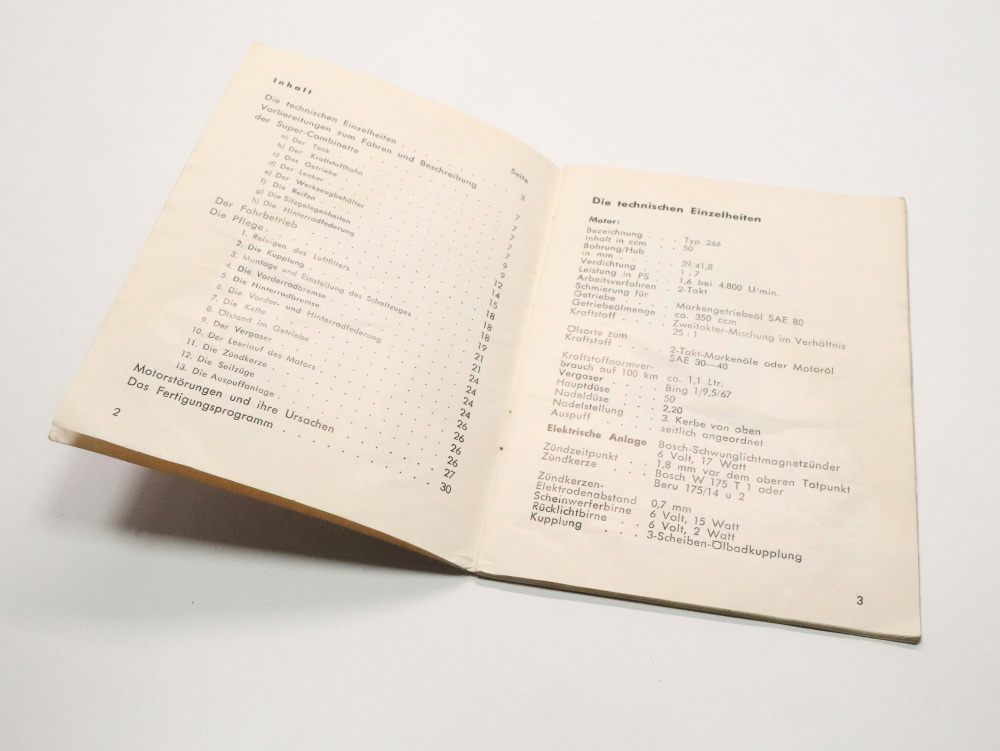 Inhalt
Seite
Die technischen Einzelheiten . . . . . . 3
Vorbereitungen zum Fahren und Beschreibung
der Super-Combinette . . . . . . 7
a) Der Tank . . . . . . 7
b) Der Kraftstoffhahn . . . . . . 7
c) Das Getriebe . . . . . . 7
d) Der Lenker . . . . . . 7
e) Der Werkzeugbehälter . . . . . . 9
f) Die Reifen . . . . . . 9
g) Die Sitzgelegenheiten . . . . . . 12
h) Die Hinterradfederung . . . . . . 14
Der Fahrbetrieb . . . . . . 15
Die Pflege . . . . . . 18
1. Reinigen des Luftfilters . . . . . . 18
2. Die Kupplung . . . . . . 18
3. Montage und Einstellung des Schaltzuges . . . . . . 19
4. Die Vorderradbremse . . . . . . 21
5. Die Hinterradbremse . . . . . . 21
6. Die Vorder- und Hinterradfederung . . . . . . 24
7. Die Kette . . . . . . 24
8. Ölstand im Getriebe . . . . . . 24
9. Der Vergaser . . . . . . 24
10. Der Leerlauf des Motors . . . . . . 26
11. Die Zündkerze . . . . . . 26
12. Die Seilzüge . . . . . . 26
13. Die Auspuffanlage . . . . . . 26
Motorstörungen und ihre Ursachen . . . . . . 27
Das Fertigungsprogramm . . . . . . 30
2
Die technischen Einzelheiten
Motor:
Bezeichnung . . . Typ 266
Inhalt in ccm . . 50
Bohrung/Hub
in mm . . . . 39/41,8
Verdichtung . . . 1 : 7
Leistung in PS . . 1,6 bei 4.800 U/min.
Arbeitsverfahren . 2-Takt
Schmierung für
Getriebe . . . . Markengetriebeöl SAE 80
Getriebeölmenge ca. 350 ccm
Kraftstoff . . . . Zweitakter-Mischung im Verhältnis
25 : 1
Ölsorte zum
Kraftstoff . . . . 2-Takt-Markenöle oder Motoröl
SAE 30—40
Kraftstoffnormver-
brauch auf 100 km ca. 1,1 Ltr.
Vergaser . . . . Bing 1/9,5/67
Hauptdüse . . . 50
Nadeldüse . . . 2,20
Nadelstellung . . 3. Kerbe von oben
Auspuff . . . . seitlich angeordnet
Elektrische Anlage Bosch-Schwunglichtmagnetzünder
6 Volt, 17 Watt
Zündzeitpunkt . . 1,8 mm vor dem oberen Totpunkt
Zündkerze . . . Bosch W 175 T 1 oder
Beru 175/14 u 2
Zündkerzen-
Elektrodenabstand 0,7 mm
Scheinwerferbirne 6 Volt, 15 Watt
Rücklichtbirne . . 6 Volt, 2 Watt
Kupplung . . . . 3-Scheiben-Ölbadkupplung
3